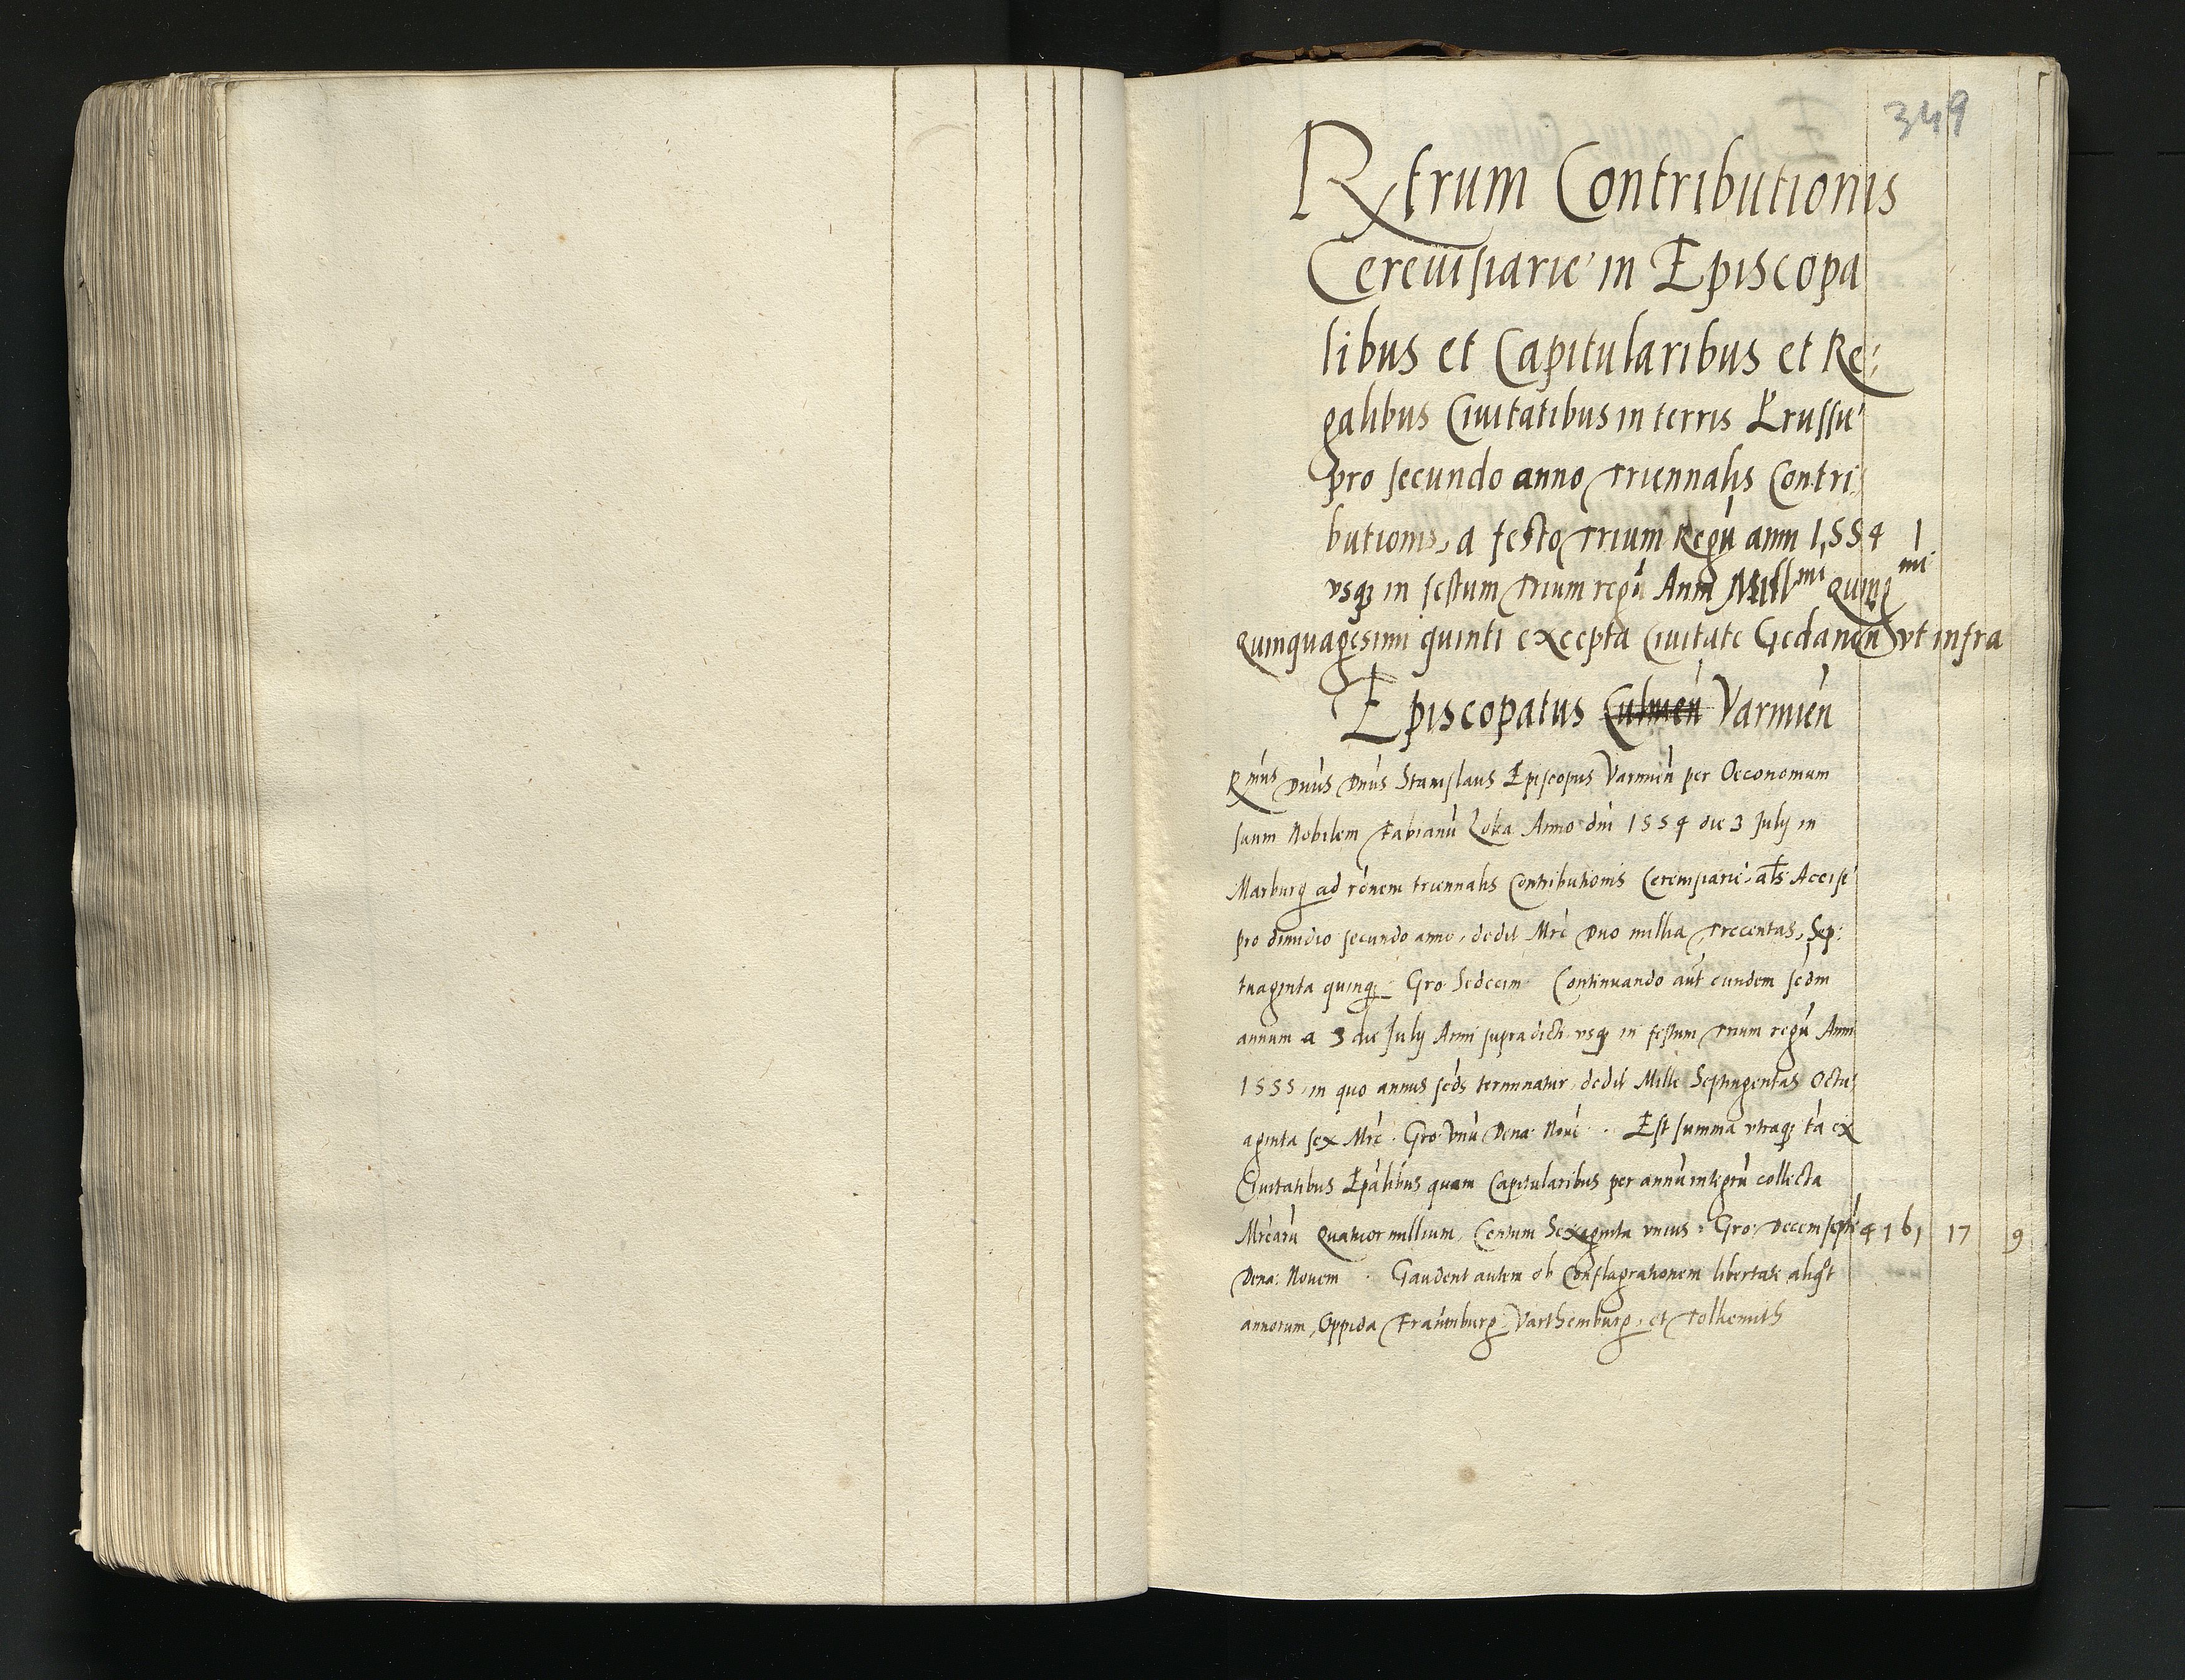 349
Rtrum Contributionis
Cereuisiarie in Episcopa
libus et Capitularibus et Re:
galibus Ciuitatibus in terris Prussie
pro secundo anno Triennalis Contri:
butionis, a festo Trium Regū anni 1554
vsq3 in festum Trium regū Anni Mill^mi Quing^mi
Quinquagesimi quinti excepta Ciuitate Gedanen̄ vt infra
Episcopatus Culmen̄ Varmien̄
R^mus Dn̄us Dn̄us Stanislaus Episcopus Varmien̄ per Oeconomum
suum Nobilem Fabianū Loka Anno dn̄i 1554 die 3 July in
Marburg ad rōnem triennalis Contributionis Cereuisiarie, als Accise
pro dimidio secundo anno, dedit Mrc̄ Duo millia Trecentas, Sep:
tuaginta quinq3 Gro Sedecim Continuando aut̄ eundem sc̄dm
annum a 3 die July Anni supradicti vsq3 in festum Trium regū Anni
1555, in quo annus sc̄ds terminatur, dedit Mille Septingentas Octu
aginta sex Mrc̄. Gro. Vnū Dena. Noue. Est summa vtraq3 tā ex
Ciuitatibus Ep̄alibus quam Capitularibus per annū integrū collecta
Mrc̄arū Quatuor millium, Centum Sexaginta vnius, Gro. Decem septē 4161 17 9
Dena: Nouem. Gaudent autem ob Conflagrationem libertate aliqt
annorum, Oppida Fraūnburg, Varthemburg, et Tolkemith